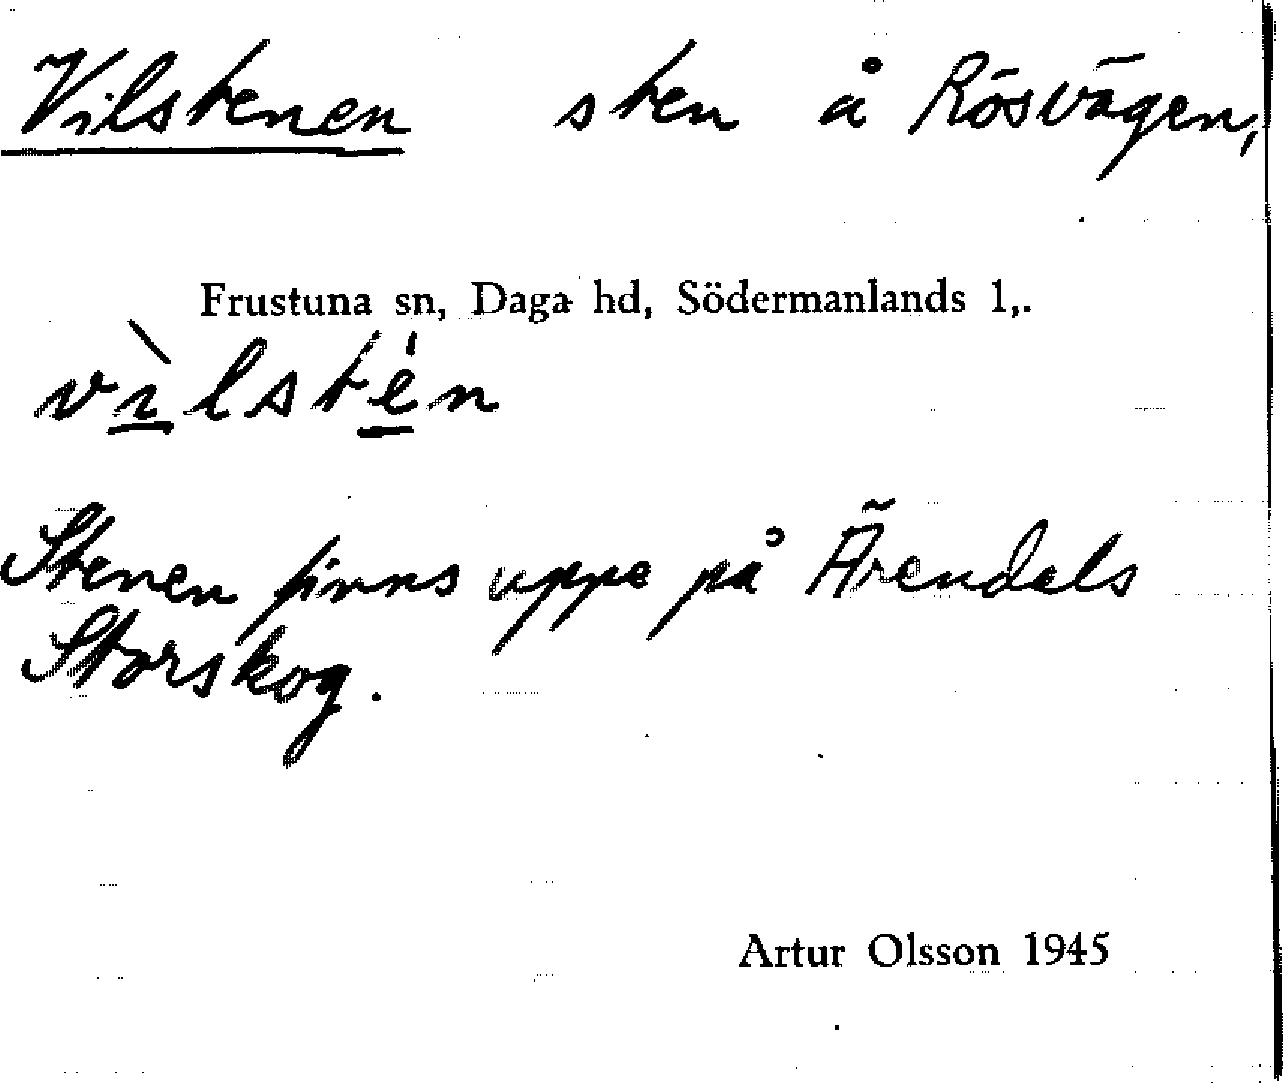 Vilstenen sten å Rösvägen,
Frustuna sn, Daga hd, Södermanlands l,.
vìlstén
Stenen finns uppe på Ärendals
Storskog.
Artur Olsson 1945